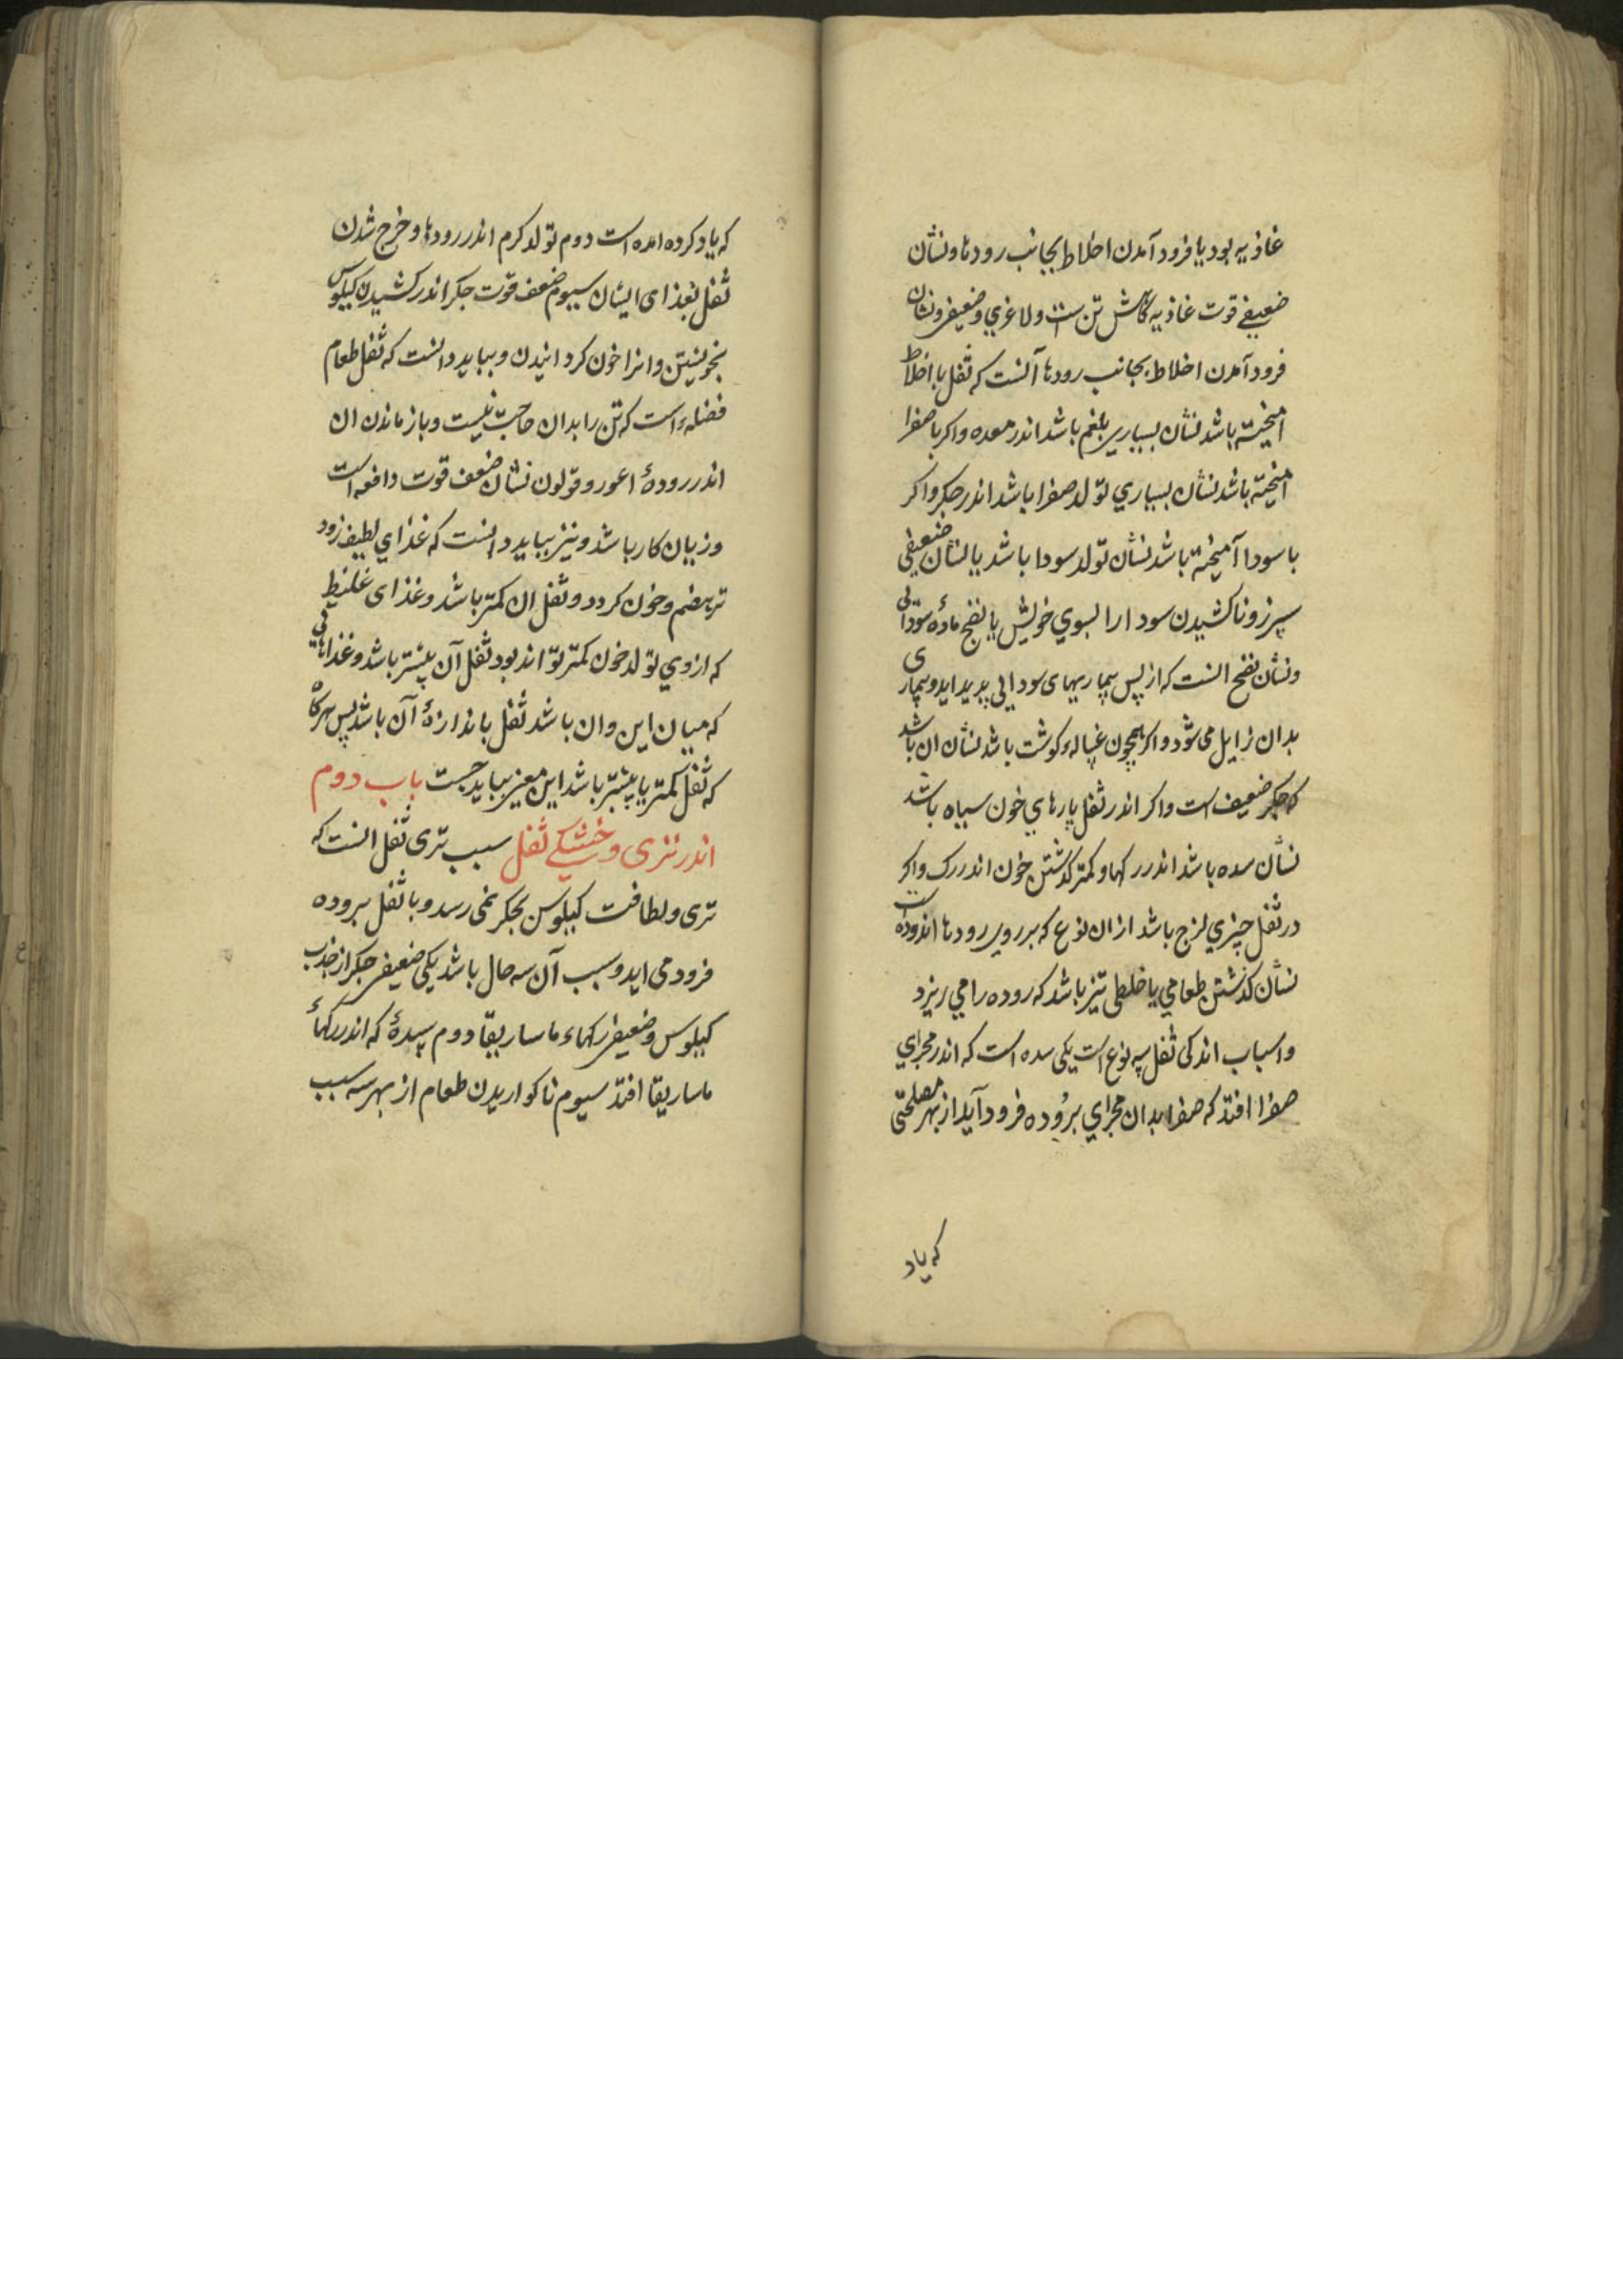 غاذیه بود یا فرود آمدن اخلاط بجانب رودها و نشان
ضعیفی قوت غاذیه کاهش تن است و لاغری و ضعیفی و نشان
فرود آمدن اخلاط بجانب رودها آنست که ثفل با اخلاط
امیخته باشد نشان بسیاری بلغم باشد اندر معده و اکر با صفرا
امیخته باشد نشان بسیاری تولد صفرا باشد اندر جکر و اکر
با سودا آمیخته باشد نشان تولد سودا باشد یا نشان ضعیفی
سپرز و ناکشیدن سودا را بسوی خویش یا نضج مادهٔ سودائی
و نشان نضج انست که از پس بیماریهای سودایی پدید اید و بیماری
بدان زایل می شود و اکر همچون غسالهٔ کوشت باشد نشان ان باشد
که جکر ضعیف است و اکر اندر ثفل پارهای خون سیاه باشد
نشان سده باشد اندر رکها و کمتر کذشتن خون اندر رک و اکر
در ثفل چیزی لزج باشد ازان نوع که بر روی رودها اندوده است
نشان کذشتن طعامی یا خلطی تیز باشد که روده را می ریزد
و اسباب اندکی ثفل سه نوع است یکی سده است که اندر مجرای
صفرا افتد که صفرا بدان مجرای بروده فرود آید از بهر مصلحتی
که یاد
که یاد کرده امده است دوم تولد کرم اندر رودها و خرج شدن
ثفل بغذای ایشان سیوم ضعف قوت جکر اندر کشیدن کیلوس
بخویشتن و انرا خون کردانیدن و بباید دانست که ثفل طعام
فضلهٔ است که تن را بدان حاجت نیست و باز ماندن ان
اندر رودهٔ اعور و قولون نشان ضعف قوت دافعه است
و زیان کار باشد و نیز بباید دانست که غذای لطیف زود
تر هضم و خون کردد و ثفل ان کمتر باشد و غذای غلیظ
که از وی تولد خون کمتر تواند بود ثفل آن بیشتر باشد و غذاهائی
که میان این و ان باشد ثفل باندازهٔ آن باشد پس هرکاه
که ثفل کمتر یا بیشتر باشد این معنی بباید جست باب دوم
اندر تری و خشکی ثفل سبب تری ثفل انست که
تری و لطافت کیلوس بجکر نمی رسد و با ثفل بروده
فرود می اید و سبب آن سه حال باشد یکی ضعیفی جکر از جذب
کیلوس و ضعیفی رکهاء ماساریقا دوم سدهٔ که اندر رکهاء
ماساریقا افتد سیوم ناکواریدن طعام از بهر سه سبب